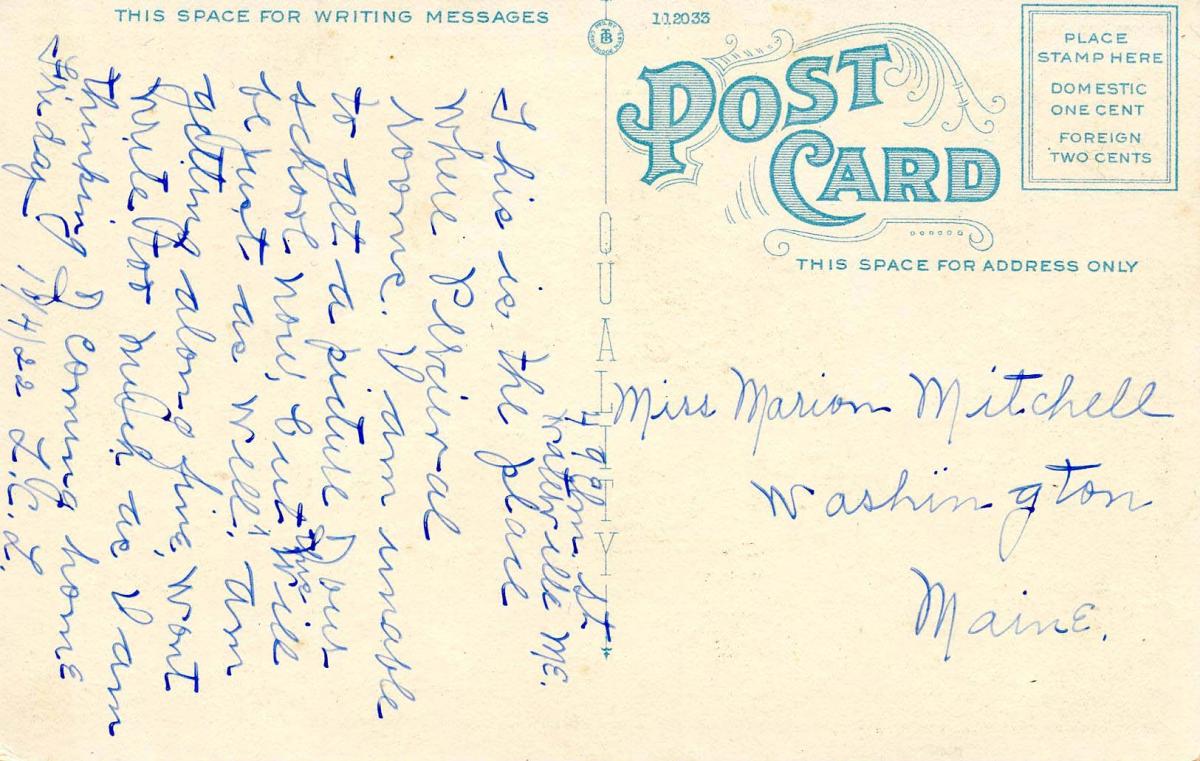 THIS SPACE FOR WRITING MESSAGES
49 Elm St
Waterville ME.
This is the place
where Percival
rooms. I am unable
to get a picture of our
school now, but this will
be just as well. Am
getting along fine, wont
write too much as I am
thinking of coming home
Friday 10/4/22 L.C.L.
112033
POST
CARD
PLACE
STAMP HERE
DOMESTIC
ONE CENT
FOREIGN
TWO CENTS
THIS SPACE FOR ADDRESS ONLY
QUALITY
Miss Marion Mitchell
Washington
Maine.